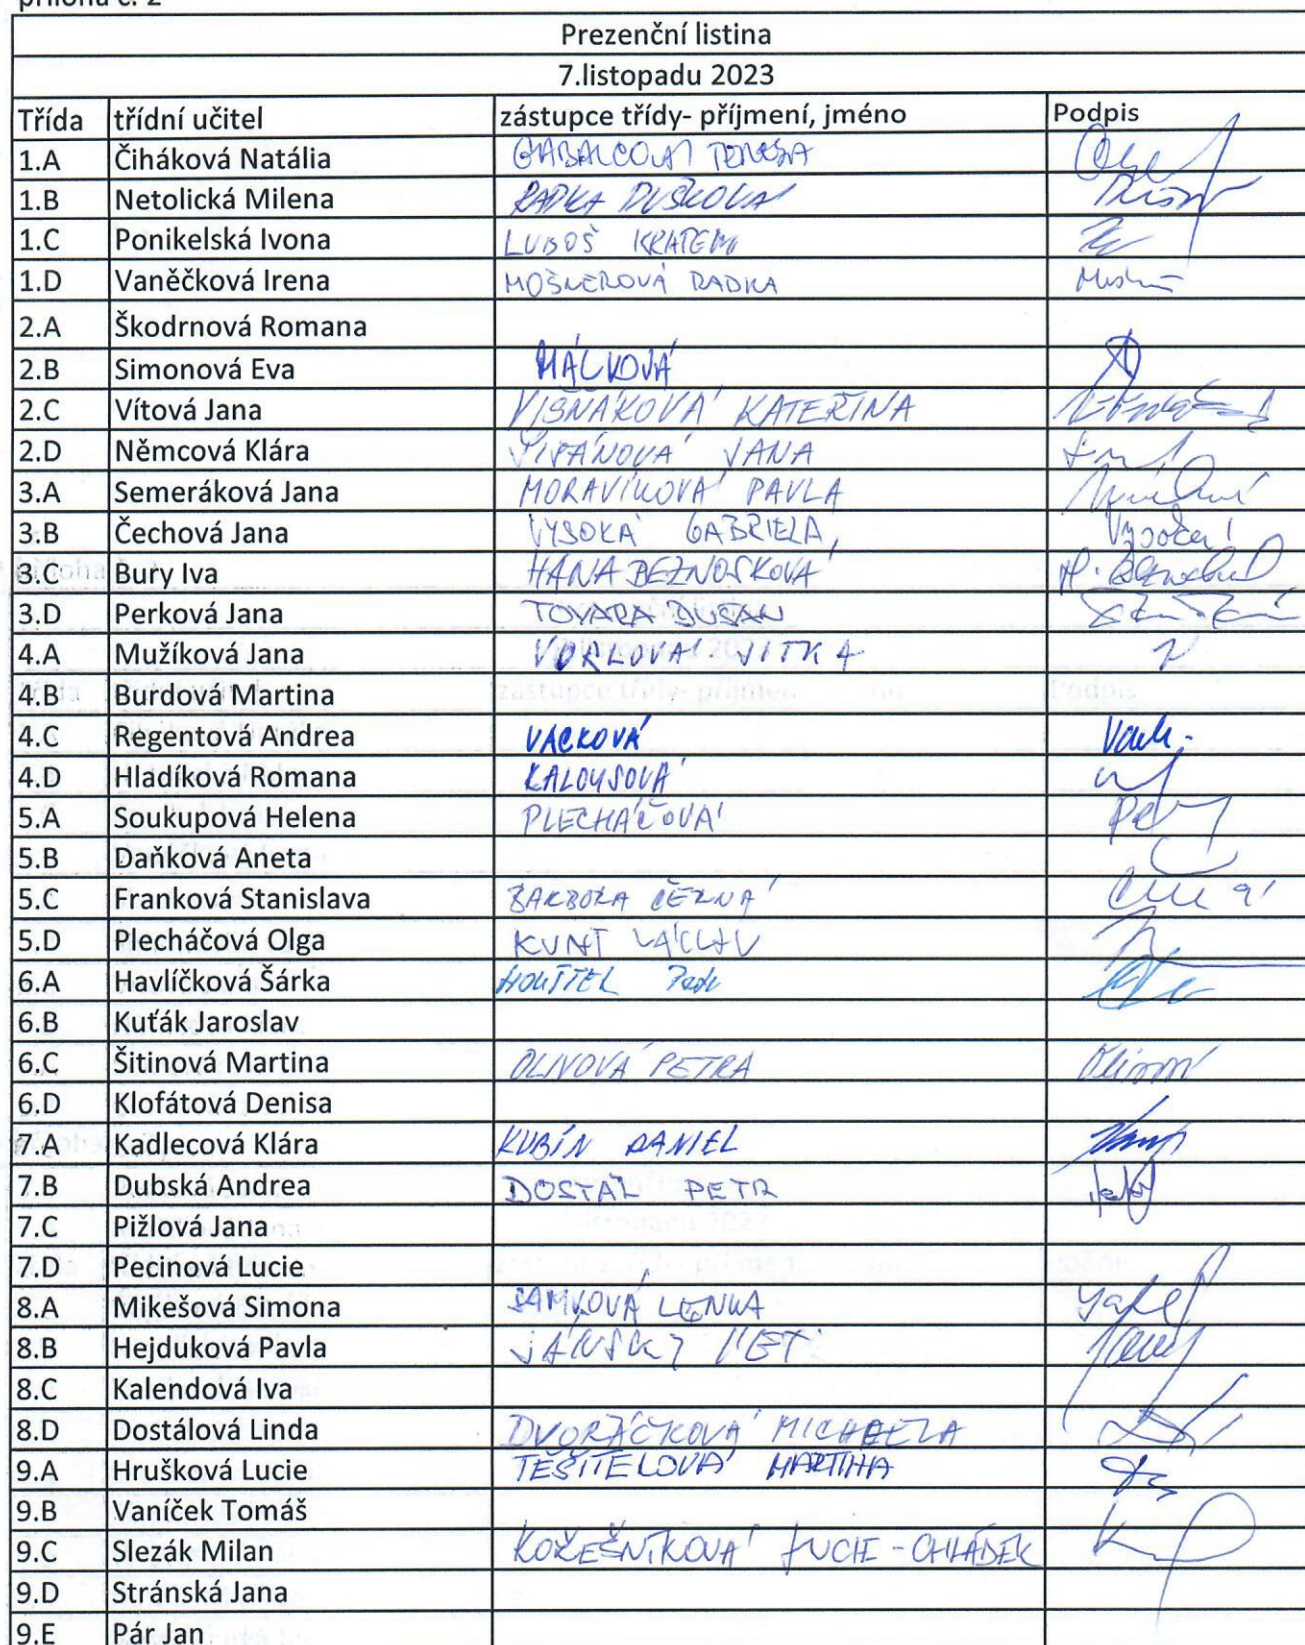 příloha č. 2
Prezenční listina
7.listopadu 2023
Třída třídní učitel zástupce třídy- příjmení, jméno Podpis
1.A Čiháková Natália
1.B Netolická Milena RADKA DUŠKOVÁ
1.C Ponikelská Ivona LUBOŠ
1.D Vaněčková Irena MOŠNEROVÁ RADKA
2.A Škodrnová Romana
2.B Simonová Eva MÁLKOVÁ
2.C Vítová Jana VIŠŇÁKOVÁ KATEŘINA
2.D Němcová Klára JANA
3.A Semeráková Jana MORAVÍKOVÁ PAVLA
3.B Čechová Jana VYSOKÁ GABRIELA, Vysoká
3.C Bury Iva HANA BEZNOSKOVÁ
3.D Perková Jana TOVARA DUŠAN
4.A Mužíková Jana VORLOVÁ JITKA
4.B Burdová Martina
4.C Regentová Andrea VACKOVÁ
4.D Hladíková Romana KALOUSOVÁ
5.A Soukupová Helena PLECHÁČOVÁ
5.B Daňková Aneta
5.C Franková Stanislava BARBORA ČERNÁ
5.D Plecháčová Olga KUNT VÁCLAV
6.A Havlíčková Šárka
6.B Kuťák Jaroslav
6.C Šitinová Martina OLIVOVÁ PETRA
6.D Klofátová Denisa
7.A Kadlecová Klára KUBÍN DANIEL
7.B Dubská Andrea DOSTÁL PETR
7.C Pižlová Jana
7.D Pecinová Lucie
8.A Mikešová Simona SAMKOVÁ LENKA
8.B Hejduková Pavla
8.C Kalendová Iva
8.D Dostálová Linda DVOŘÁČKOVÁ MICHAELA
9.A Hrušková Lucie TĚŠITELOVÁ MARTINA
9.B Vaníček Tomáš
9.C Slezák Milan KOŽEŠNÍKOVÁ LUCIE - CHLÁDEK
9.D Stránská Jana
9.E Pár Jan